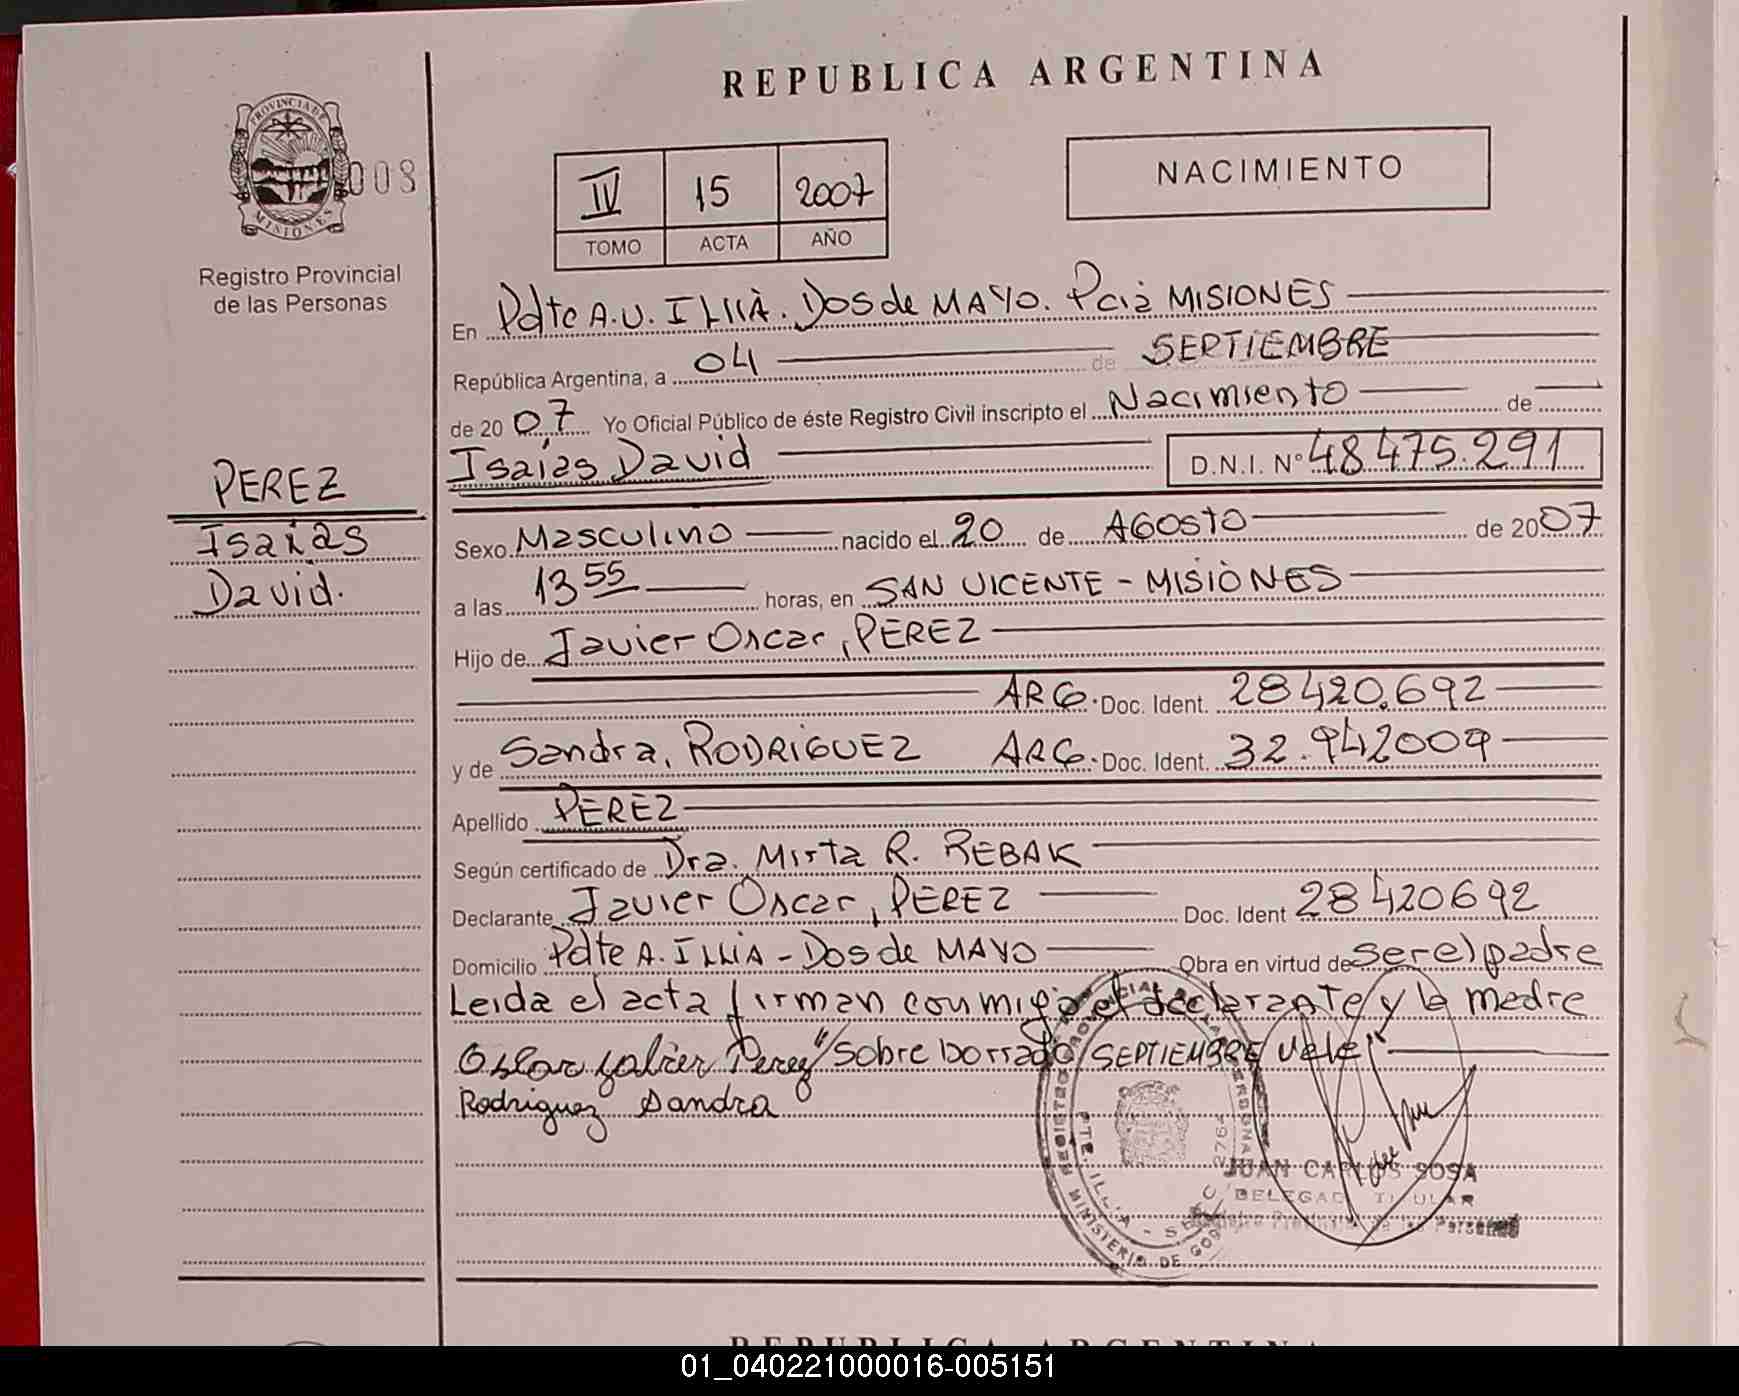 REPUBLICA ARGENTINA
PROVINCIA DE MISIONES
008
Registro Provincial
de las Personas
IV 15 2007
TOMO ACTA AÑO
NACIMIENTO
En Pdte A.U. ILLIA. Dos de MAYO. Pcia MISIONES
República Argentina, a 04 de SEPTIEMBRE
de 2007 Yo Oficial Público de éste Registro Civil inscripto el Nacimiento de
Isaías David D.N.I. Nº 48475.291
PEREZ
Isaias
David.
Sexo Masculino nacido el 20 de AGOSTO de 2007
a las 13 55 horas, en SAN VICENTE - MISIONES
Hijo de Javier Oscar, PEREZ
ARG. Doc. Ident. 28420.692
y de Sandra, RODRIGUEZ ARG. Doc. Ident. 32.942009
Apellido PEREZ
Según certificado de Dra. Mirta R. REBAK
Declarante Javier Oscar, PEREZ Doc. Ident 28420692
Domicilio Pdte A. ILLIA - Dos de MAYO Obra en virtud de ser el padre
Leida el acta firman conmigo el declarante y la madre
Oscar Javier Perez "Sobre borrado/SEPTIEMBRE/Vale"
Rodriguez Sandra
JUAN CARLOS SOSA
DELEGADO TITULAR
Provincial de las Personas
REPUBLICA ARGENTINA
01_040221000016-005151